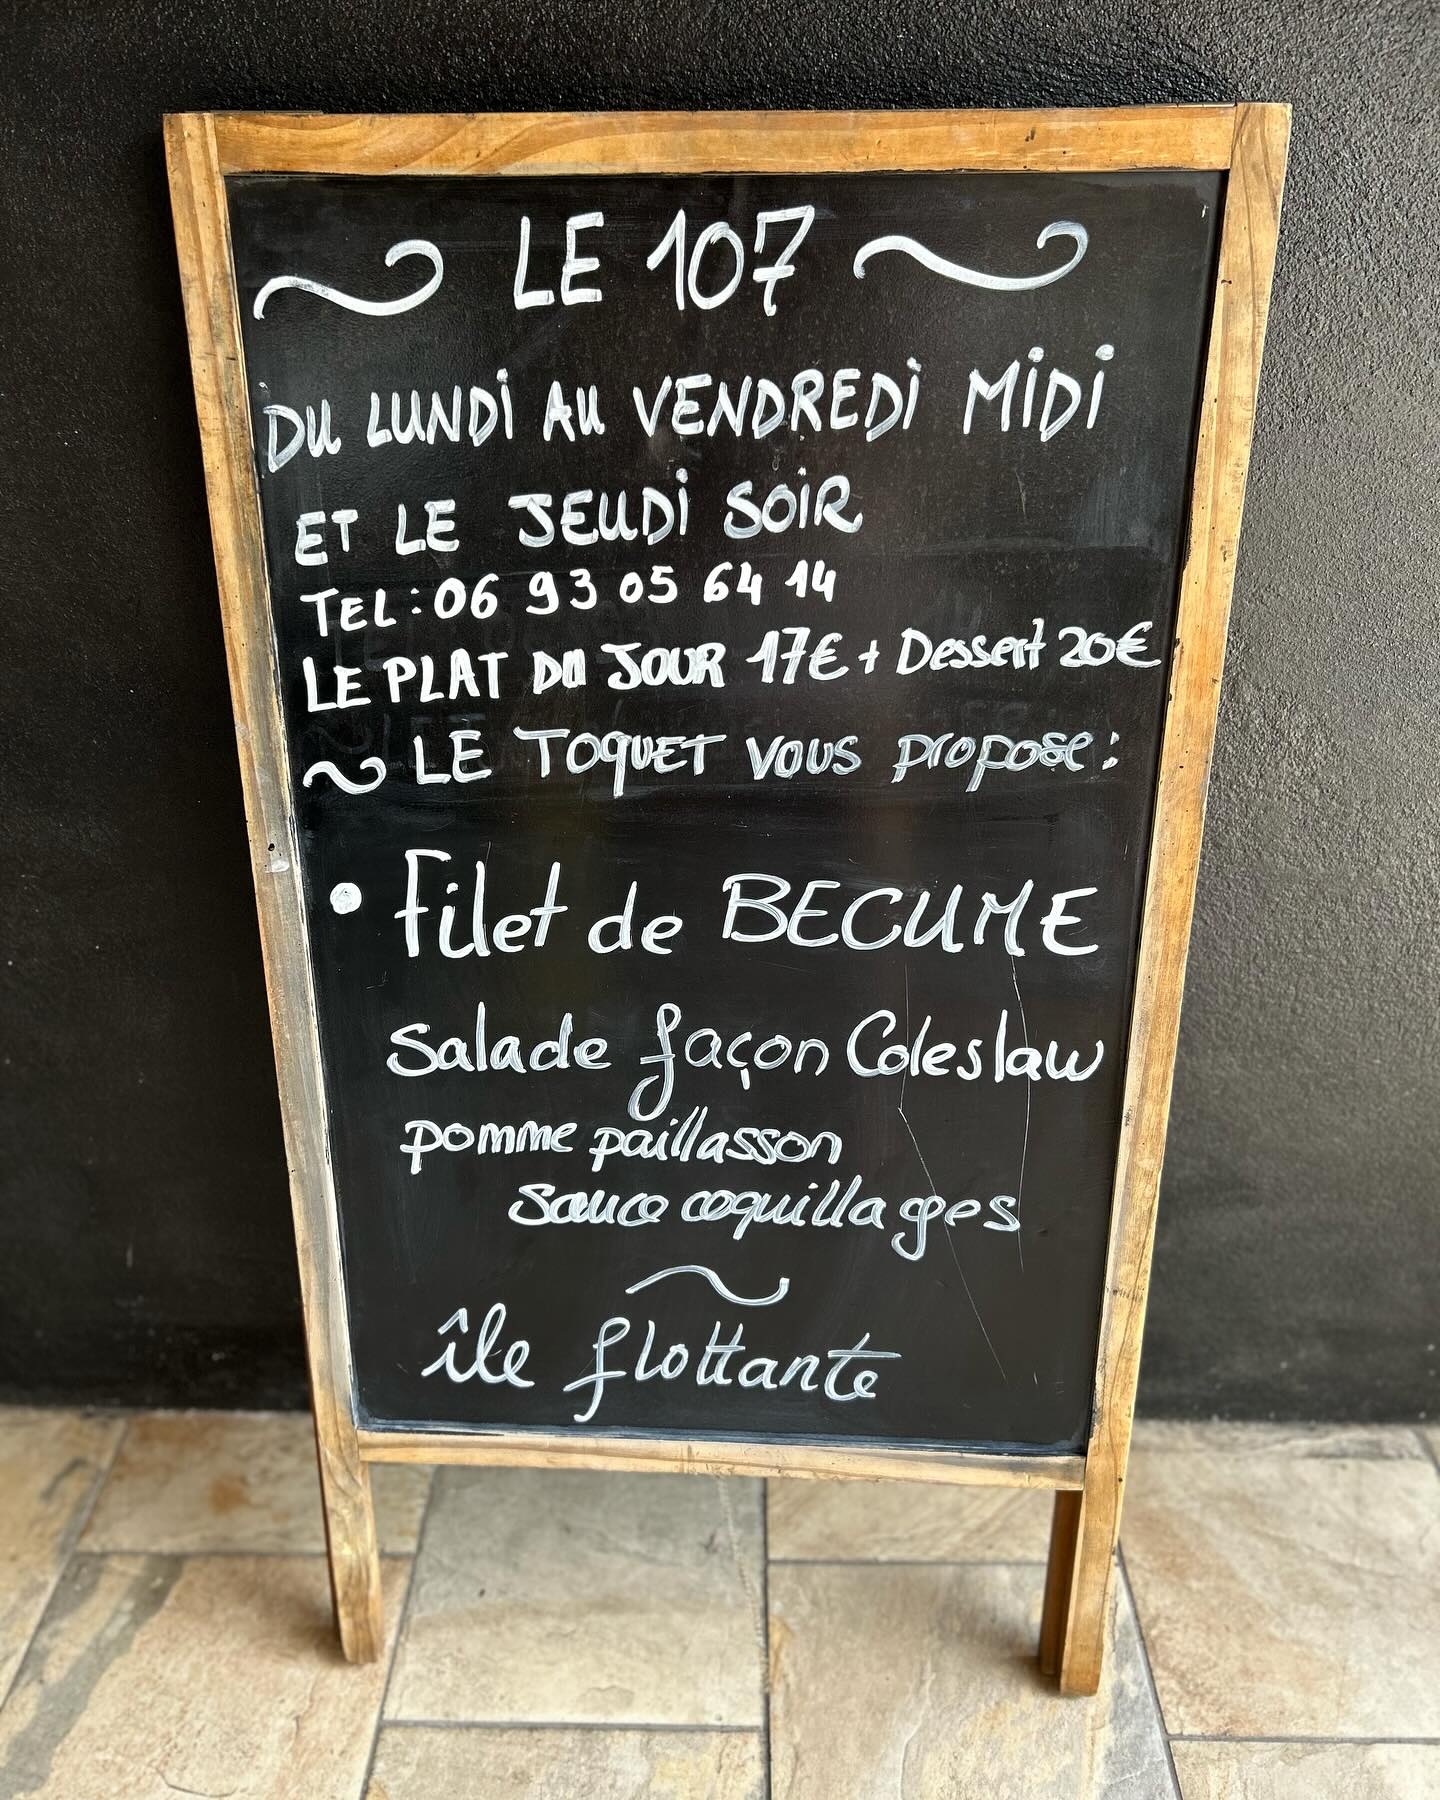 LE 107
DU LUNDi AU VENDREDi MiDi
ET LE JEUDi SOiR
TEL : 06 93 05 64 14
LE PLAT DU JOUR 17€ + Dessert 20€
LE TOQUET VOUS propose :
• Filet de BECUNE
Salade façon Coleslaw
pomme paillasson
sauce coquillages
île flottante